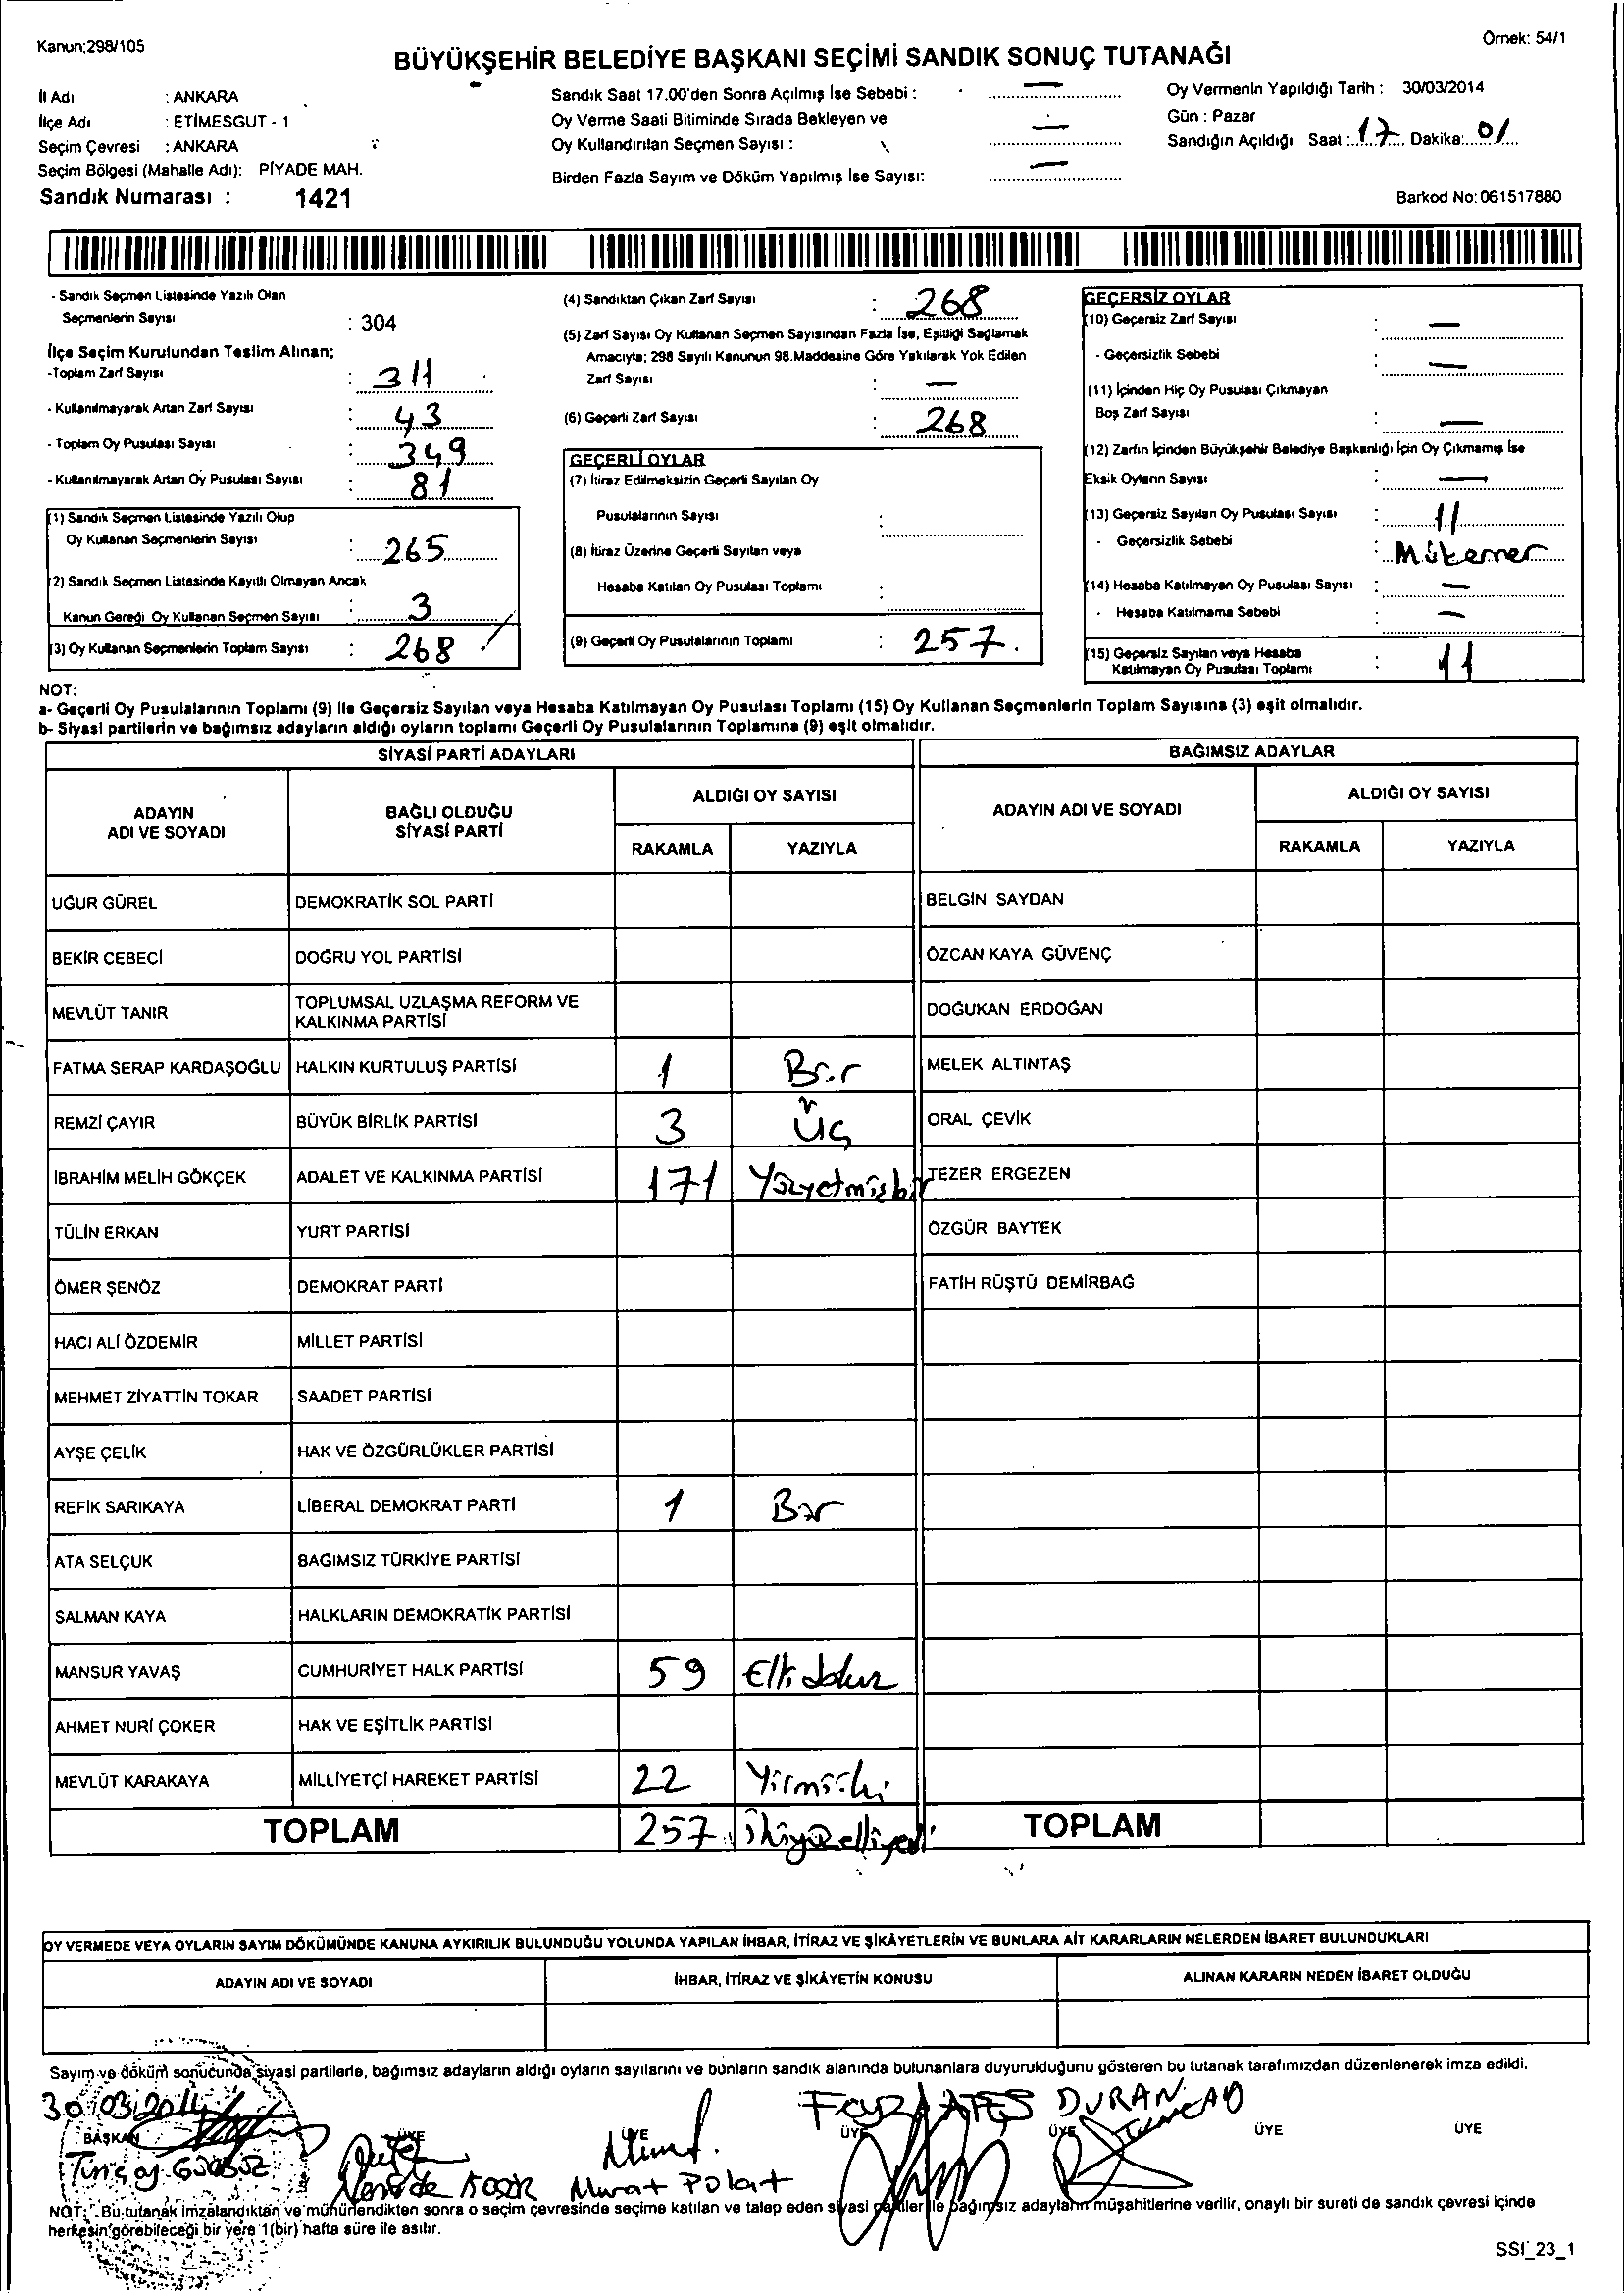 Kanun:298/105
Örnek: 54/1
BÜYÜKŞEHİR BELEDİYE BAŞKANI SEÇİMİ SANDIK SONUÇ TUTANAĞI
İl Adı : ANKARA
İlçe Adı : ETİMESGUT - 1
Seçim Çevresi : ANKARA
Seçim Bölgesi (Mahalle Adı): PİYADE MAH.
Sandık Numarası : 1421
Sandık Saat 17.00'den Sonra Açılmış İse Sebebi : —
Oy Verme Saati Bitiminde Sırada Bekleyen ve
Oy Kullandırılan Seçmen Sayısı : —
Birden Fazla Sayım ve Döküm Yapılmış İse Sayısı: —
Oy Vermenin Yapıldığı Tarih : 30/03/2014
Gün : Pazar
Sandığın Açıldığı Saat : 17 Dakika: 01
Barkod No: 061517880
- Sandık Seçmen Listesinde Yazılı Olan
Seçmenlerin Sayısı : 304
İlçe Seçim Kurulundan Teslim Alınan;
-Toplam Zarf Sayısı : 311
- Kullanılmayarak Artan Zarf Sayısı : 43
- Toplam Oy Pusulası Sayısı : 349
- Kullanılmayarak Artan Oy Pusulası Sayısı : 81
(1) Sandık Seçmen Listesinde Yazılı Olup
Oy Kullanan Seçmenlerin Sayısı : 265
(2) Sandık Seçmen Listesinde Kayıtlı Olmayan Ancak
Kanun Gereği Oy Kullanan Seçmen Sayısı : 3
(3) Oy Kullanan Seçmenlerin Toplam Sayısı : 268
(4) Sandıktan Çıkan Zarf Sayısı : 268
(5) Zarf Sayısı Oy Kullanan Seçmen Sayısından Fazla İse, Eşitliği Sağlamak
Amacıyla; 298 Sayılı Kanunun 98.Maddesine Göre Yakılarak Yok Edilen
Zarf Sayısı : —
(6) Geçerli Zarf Sayısı : 268
GEÇERLİ OYLAR
(7) İtiraz Edilmeksizin Geçerli Sayılan Oy
Pusulalarının Sayısı :
(8) İtiraz Üzerine Geçerli Sayılan veya
Hesaba Katılan Oy Pusulası Toplamı :
(9) Geçerli Oy Pusulalarının Toplamı : 257.
GEÇERSİZ OYLAR
(10) Geçersiz Zarf Sayısı : —
- Geçersizlik Sebebi : —
(11) İçinden Hiç Oy Pusulası Çıkmayan
Boş Zarf Sayısı : —
(12) Zarfın İçinden Büyükşehir Belediye Başkanlığı İçin Oy Çıkmamış İse
Eksik Oyların Sayısı : —
(13) Geçersiz Sayılan Oy Pusulası Sayısı : 11
- Geçersizlik Sebebi : Mükerrer
(14) Hesaba Katılmayan Oy Pusulası Sayısı : —
- Hesaba Katılmama Sebebi : —
(15) Geçersiz Sayılan veya Hesaba
Katılmayan Oy Pusulası Toplamı : 11
NOT:
a- Geçerli Oy Pusulalarının Toplamı (9) İle Geçersiz Sayılan veya Hesaba Katılmayan Oy Pusulası Toplamı (15) Oy Kullanan Seçmenlerin Toplam Sayısına (3) eşit olmalıdır.
b- Siyasi partilerin ve bağımsız adayların aldığı oyların toplamı Geçerli Oy Pusulalarının Toplamına (9) eşit olmalıdır.
SİYASİ PARTİ ADAYLARI
BAĞIMSIZ ADAYLAR
ADAYIN ADI VE SOYADI
BAĞLI OLDUĞU SİYASİ PARTİ
ALDIĞI OY SAYISI
RAKAMLA YAZIYLA
ADAYIN ADI VE SOYADI
ALDIĞI OY SAYISI
RAKAMLA YAZIYLA
UĞUR GÜREL DEMOKRATİK SOL PARTİ BELGİN SAYDAN
BEKİR CEBECİ DOĞRU YOL PARTİSİ ÖZCAN KAYA GÜVENÇ
MEVLÜT TANIR TOPLUMSAL UZLAŞMA REFORM VE KALKINMA PARTİSİ DOĞUKAN ERDOĞAN
FATMA SERAP KARDAŞOĞLU HALKIN KURTULUŞ PARTİSİ 1 Bir MELEK ALTINTAŞ
REMZİ ÇAYIR BÜYÜK BİRLİK PARTİSİ 3 Üç ORAL ÇEVİK
İBRAHİM MELİH GÖKÇEK ADALET VE KALKINMA PARTİSİ 171 Yüzyetmişbir TEZER ERGEZEN
TÜLİN ERKAN YURT PARTİSİ ÖZGÜR BAYTEK
ÖMER ŞENÖZ DEMOKRAT PARTİ FATİH RÜŞTÜ DEMİRBAĞ
HACI ALİ ÖZDEMİR MİLLET PARTİSİ
MEHMET ZİYATTİN TOKAR SAADET PARTİSİ
AYŞE ÇELİK HAK VE ÖZGÜRLÜKLER PARTİSİ
REFİK SARIKAYA LİBERAL DEMOKRAT PARTİ 1 Bir
ATA SELÇUK BAĞIMSIZ TÜRKİYE PARTİSİ
SALMAN KAYA HALKLARIN DEMOKRATİK PARTİSİ
MANSUR YAVAŞ CUMHURİYET HALK PARTİSİ 59 Elli dokuz
AHMET NURİ ÇOKER HAK VE EŞİTLİK PARTİSİ
MEVLÜT KARAKAYA MİLLİYETÇİ HAREKET PARTİSİ 22 Yirmiiki
TOPLAM 257 ikiyüzelliyedi TOPLAM
OY VERMEDE VEYA OYLARIN SAYIM DÖKÜMÜNDE KANUNA AYKIRILIK BULUNDUĞU YOLUNDA YAPILAN İHBAR, İTİRAZ VE ŞİKÂYETLERİN VE BUNLARA AİT KARARLARIN NELERDEN İBARET BULUNDUKLARI
ADAYIN ADI VE SOYADI İHBAR, İTİRAZ VE ŞİKÂYETİN KONUSU ALINAN KARARIN NEDEN İBARET OLDUĞU
Sayım ve döküm sonucunda siyasi partilerle, bağımsız adayların aldığı oyların sayılarını ve bunların sandık alanında bulunanlara duyurulduğunu gösteren bu tutanak tarafımızdan düzenlenerek imza edildi.
30/03/2014 ATEŞ DURAN
BAŞKAN ÜYE ÜYE ÜYE ÜYE ÜYE ÜYE
Murat Polat
NOT: -Bu tutanak imzalandıktan ve mühürlendikten sonra o seçim çevresinde seçime katılan ve talep eden siyasi partiler ile bağımsız adayların müşahitlerine verilir, onaylı bir sureti de sandık çevresi içinde
herkesin görebileceği bir yere 1(bir) hafta süre ile asılır.
SSI_23_1